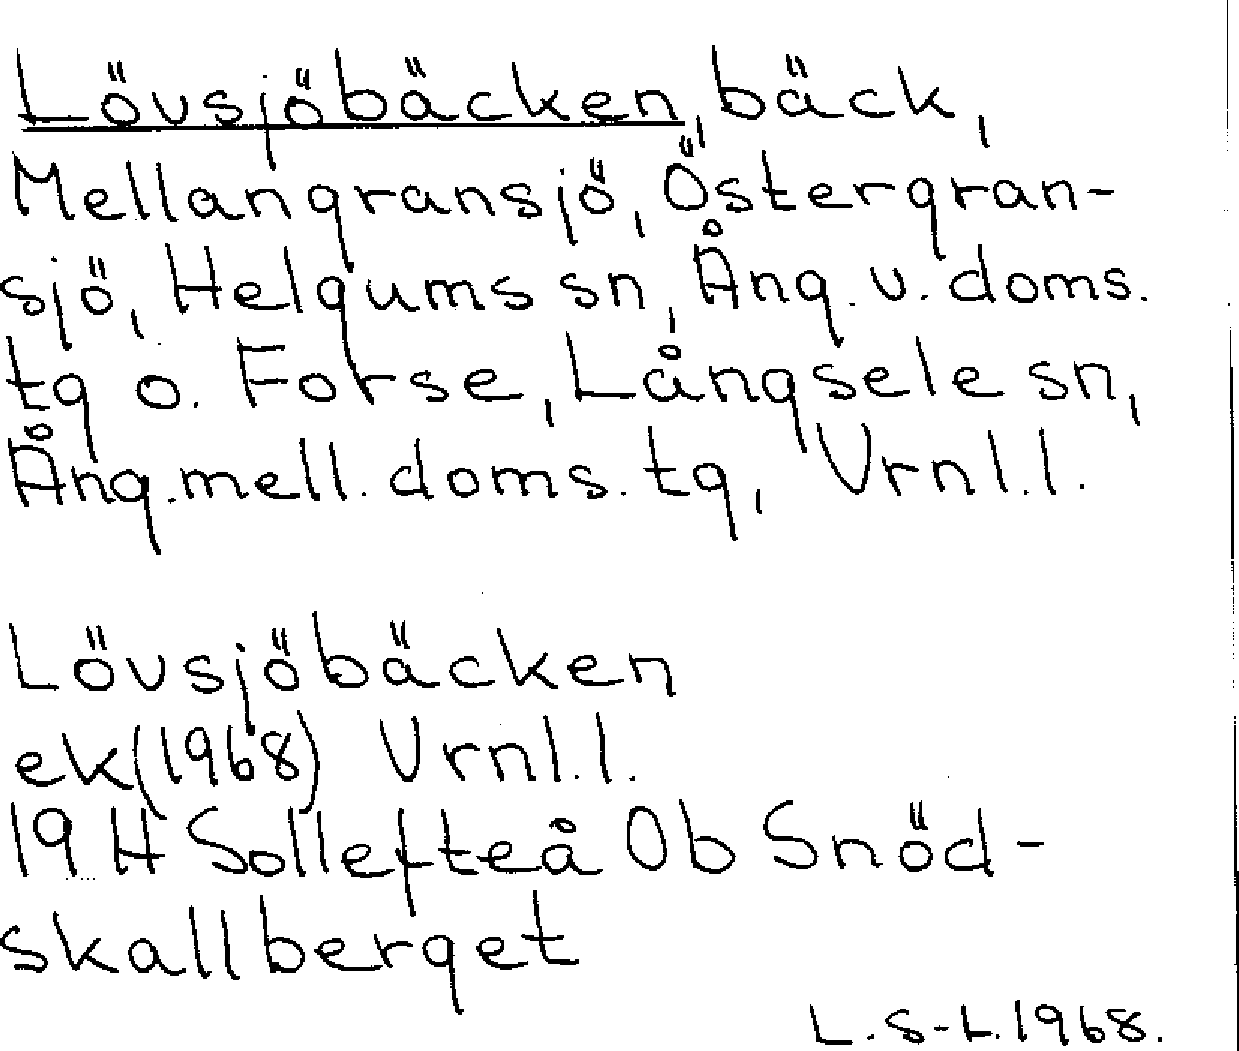 Lövsjöbäcken, bäck,
Mellangransjö, Östergran-
sjö, Helgums sn, Ång. v. doms.
tg o. Forse, Långsele sn,
Ång. mell. doms. tg, Vrnl. l.
Lövsjöbäcken
ek (1968) Vrnl. l.
19 H Sollefteå 0b Snöd-
skallberget
L. S-L. 1968.